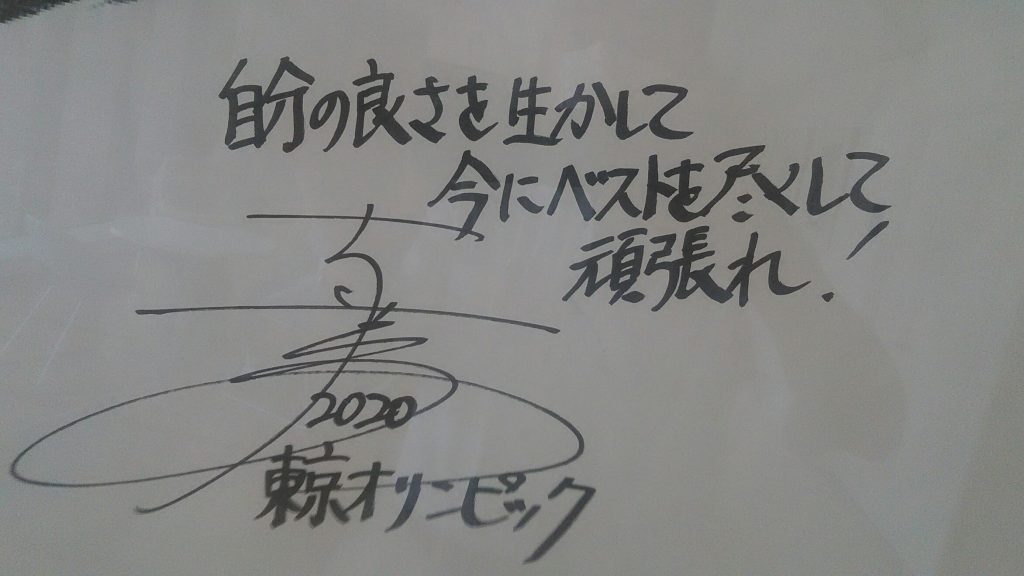 自分の良さを生かして
今にベストを尽くして
頑張れ!
2020
東京オリンピック